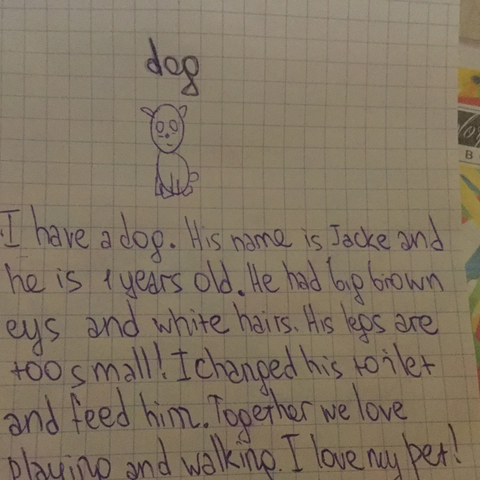 dog
I have a dog. His name is Jacke and
he is 1 years old. He had big brown
eys and white hairs. His legs are
too small! I changed his toilet
and feed him. Together we love
playing and walking. I love my pet!
B